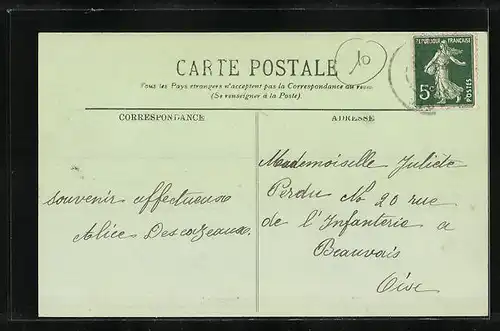 CARTE POSTALE
10
Tous les Pays étrangers n'acceptent pas la Correspondance au recto
(Se renseigner à la Poste).
REPUBLIQUE FRANÇAISE
5c
POSTES
CORRESPONDANCE
souvenir affectueux
Alice
ADRESSE
Mademoiselle Juliette
Perdu No 20 rue
de l'Infanterie a
Beauvais
Oise